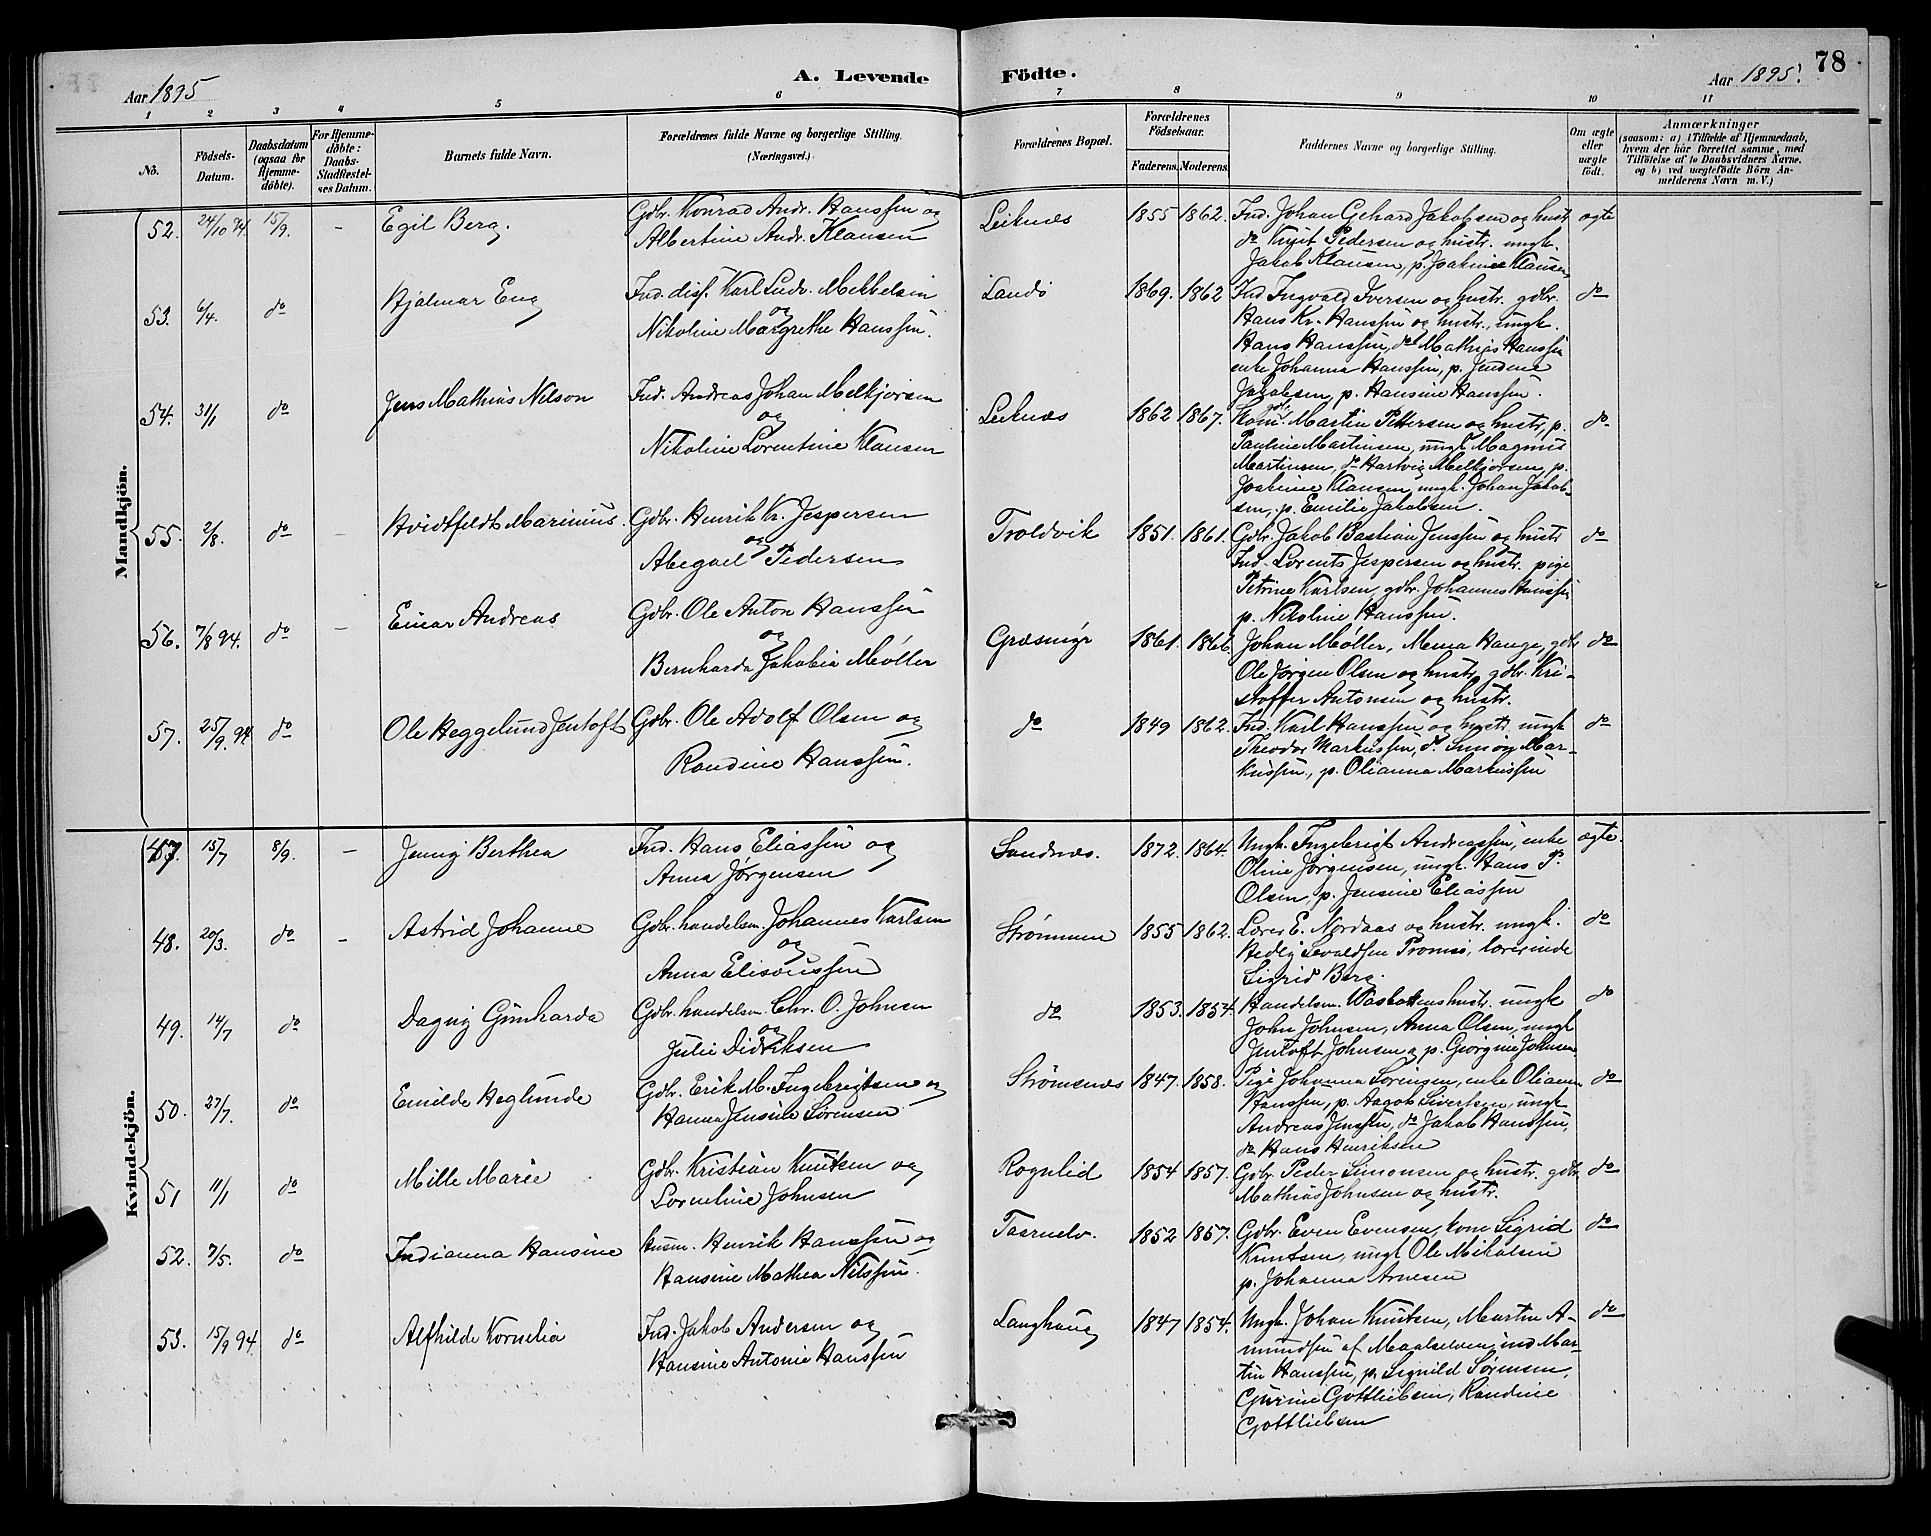 78
Aar 1895
A. Levende
Födte.
Aar 1895.
1 2 3 4 5 6 7 8 9 10 11
No.
Födsels-Datum.
Daabsdatum (ogsaa for Hjemme-döbte).
For Hjemme-döbte: Daabs-Stadfæstel-ses Datum.
Barnets fulde Navn.
Forældrenes fulde Navne og borgerlige Stilling.
(Næringsvei.)
Forældrenes Bopæl.
Forældrenes Födselsaar.
Faderens. Moderens.
Faddernes Navne og borgerlige Stilling.
Om ægte eller uægte födt.
Anmærkninger
(saasom: a) i Tilfælde af Hjemmedaab, hvem der har forrettet samme, med Tilföielse af to Daabsvidners Navne, og b) ved uægtefödte Börn An-melderens Navn m. V.)
Mandkjön.
52. 24/10 94. 15/9. - Egil Berg. Gdbr. Konrad Andr. Hanssen og Leiknæs 1855 1862. Ind. Johan Gehard Jakobsen og hustr. ægte
Albertine Andr. Klausen do Knut Pedersen og hustr. ungk.
Jakob Klausen, p. Joakine Klausen
53. 6/4. do Hjalmar Eng Ind. disp. Karl Ludv. Mekkelsen Landö 1869. 1862 Ind. Ingvald Iversen og hustr. gdbr. do
og Hans Kr. Hanssen og hustr., ungk.
Nikoline Margrethe Hanssen. Hans Hanssen, do Mathias Hanssen
enke Johanna Hanssen, p. Jensine
Jakobsen, p. Hansine Hanssen.
54. 31/1 do Jens Mathias Nilson Ind. Andreas Johan Melkjorsen Leiknæs 1862 1867. Martin Pettersen og hustr., p. do
og Pauline Martinsen, ungk. Magnus
Nikoline Lorentine Klausen Martinsen, do Hartvig Melkjorsen, p.
Joakine Klausen, ungk. Johan Jakob-
sen, p. Emilie Jakobsen.
55. 2/8. do - Hvidtfeldt Marinius. Gdbr. Henrik Kr. Jespersen Troldvik 1851. 1861. Gdbr. Jakob Bastian Jenssen og hustr. do
og Ind. Lorents Jespersen og hustr. pige
Abegael Pedersen Petrine Karlsen, gdbr. Johannes Hanssen
p. Nikoline Hanssen.
56. 7/8 94. do - Einar Andreas Gdbr. Ole Anton Hanssen Græsmyr 1861. 1866. Johan Møller, Mema Hauge, gdbr. do
og Ole Jørgen Olsen og hustr. gdbr. Kri-
Bernharda Jakobia Møller stoffer Antonsen og hustr.
57. 25/9. 94 do Ole Heggelund Jentoft Gdbr. Ole Adolf Olsen og do 1849 1862. Ind. Karl Hanssen og hustr. ungk. do
Randine Hanssen. Theodor Markussen, do Simøn Mar-
kussen, p. Olianna Markussen
Kvindekjön.
47. 15/7 8/9. - Jenny Berthea Ind. Hans Eliassen og Sandnæs. 1872. 1864. Ungk. Ingebrigt Andreassen, enke ægte.
Anna Jørgensen Oline Jørgensen, ungk. Hans P.
Olsen, p. Jensine Eliassen
48. 20/3. do - Astrid Johanne Gdbr. handelsm. Johannes Karlsen Strømmen 1855 1862. Lærer E. Nordaas og hustr. ungk. do
og Hedly Sevaldsen Tromsö, lærerinde
Anna Elisæussen Sigrid Berg.
49. 14/7 do Dagny Gunharda Gdbr. handelsm. Chr. O. Johnsen do 1853. 1854. Handelsm. hustr. ungk. do
og John Johnsen, Anna Olsen, ungk.
Julie Didriksen Jentoft Johnsen og p. Georgine Johnsen
50. 27/7. do Emilde Heglunde Gdbr. Erik M. Ingebrigtsen og Strömsnæs 1847. 1858. Pige Johanna Sörensen, enke Olianna do
Hanna Jensine Sörensen Hanssen, p. Aagot Sivertsen, ungk.
Andreas Jenssen, do Jakob Hanssen,
do Hans Henriksen
51 11/1 do Mille Marie Gdbr. Kristian Knutsen og Rognlid 1854 1857. Gdbr. Peder Simonsen og hustr. gdbr. do
Lorneline Johnsen Mathias Johnsen og hustr.
52. 7/5. do Indianna Hansine Husm. Henrik Hanssen og Taarnelv. 1852 1857. Gdbr. Even Evensen, kone Sigrid do
Hansine Mathea Nilssen. Knutsen, ungk. Ole Mikalsen
p. Johanna Arnesen
53. 15/9 94. do Alfhilde Kornelia Ind. Jakob Andersen og Langhaug 1847 1854. Ungk. Johan Knutsen, Martin A- do
Hansine Antonie Hanssen mundsen af Maalselven, ind. Mar-
tin Hanssen, p. Signild Sørensen,
Gurine Gottliebsen, Randine
Gottliebsen